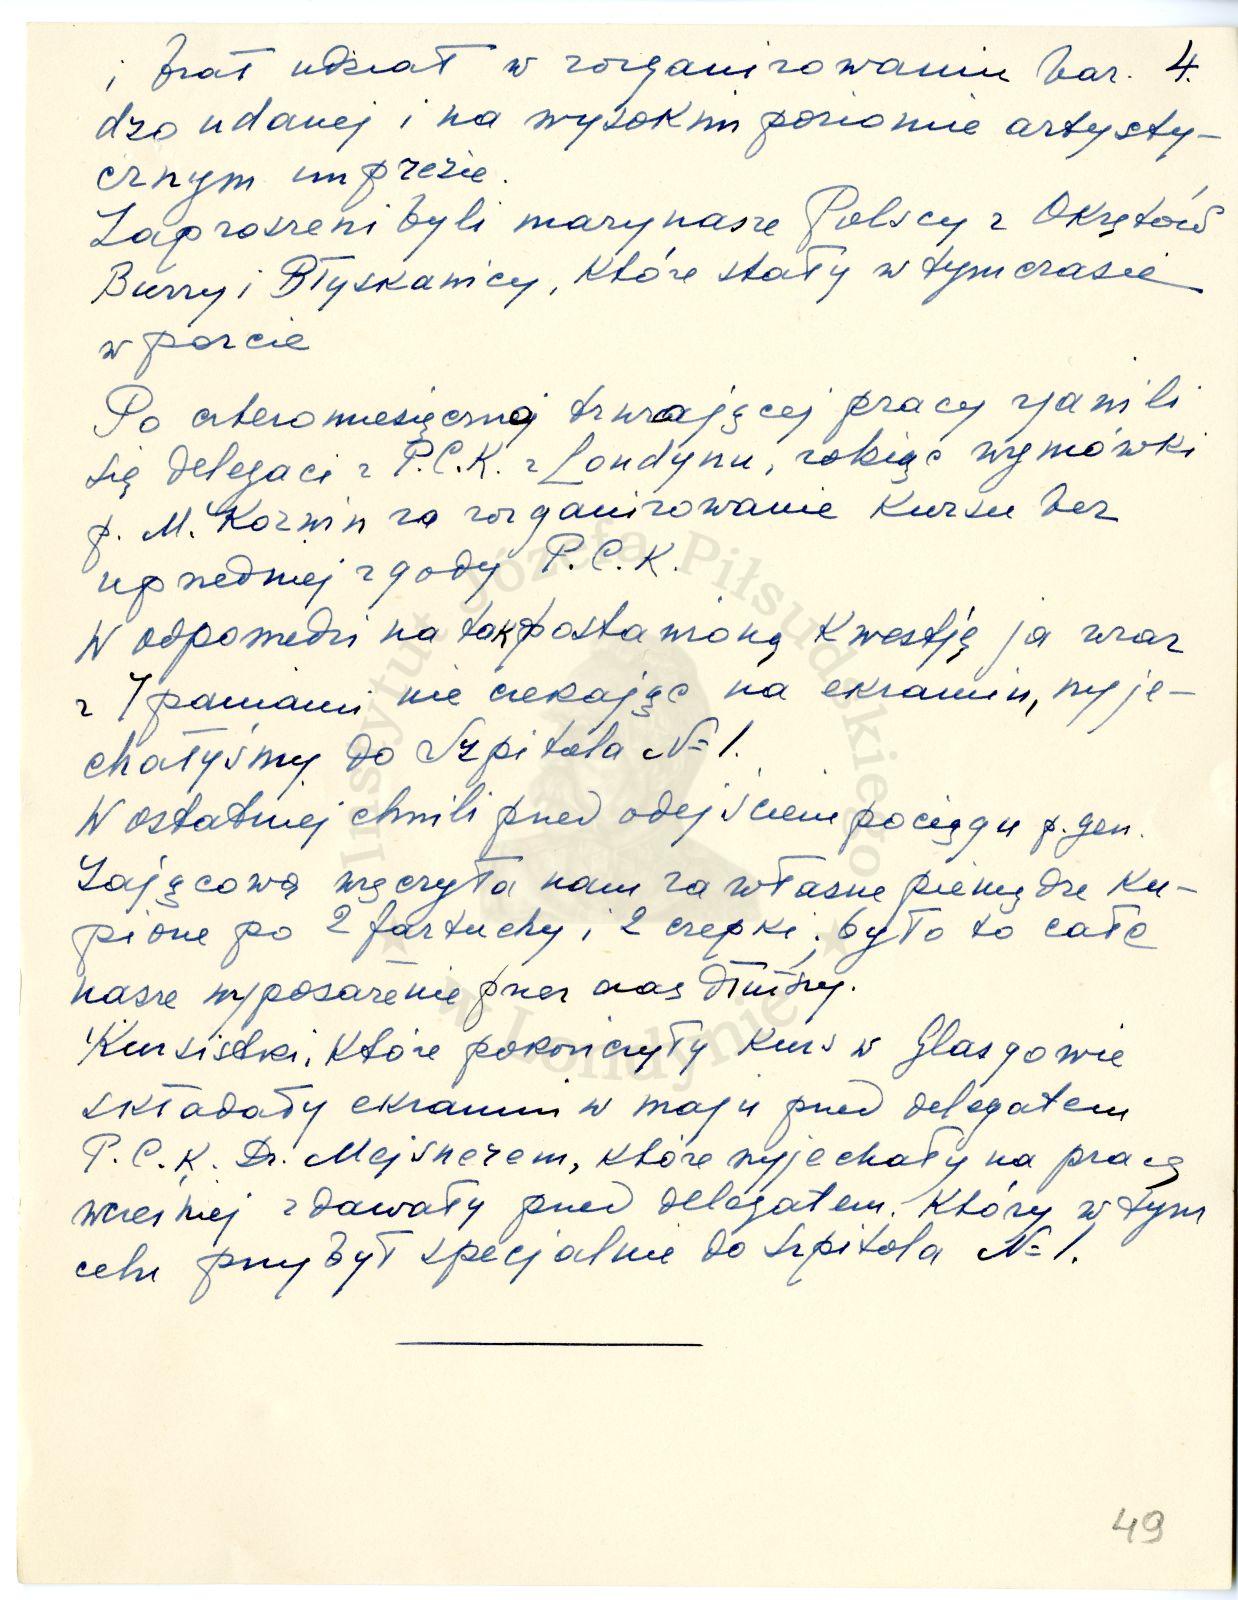 i brał udział w zorganizowaniu bar- 4.
dzo udanej i na wysokim poziomie artysty-
cznym imprezie.
Zaproszeni byli marynarze Polscy z Okrętów
Burzy i Błyskawicy, które stały w tym czasie
w porcie
Po czteromiesięcznej trwającej pracy zjawili
się delegaci z P.C.K. z Londynu, robiąc wymówki
p. M. Korwin za zorganizowanie Kursu bez
uprzedniej zgody P.C.K.
W odpowiedzi na tak postawioną kwestję ja wraz
z 7 paniami nie czekając na ekzamin, wyje-
chałyśmy do Szpitala № 1.
W ostatniej chwili przed odejściem pociągu p. gen.
Zającową wręczyła nam za własne pieniądze ku-
pione po 2 fartuchy i 2 czepki; było to całe
nasze wyposażenie przez czas dłuższy.
Kursistki, które pokończyły Kurs w Glasgowie
składały ekzamin w maju przed delegatem
P.C.K. Dr. Mejsnerem, które wyjechały na pracę
wcześniej zdawały przed delegatem, który w tym
celu przybył specjalnie do Szpitala № 1.
49
Instytut Józefa Piłsudskiego
w Londynie